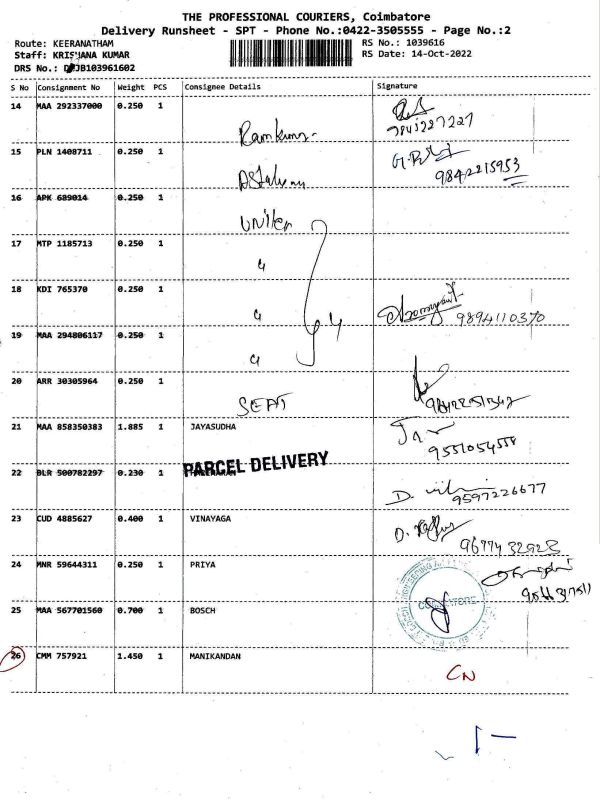 THE PROFESSIONAL COURIERS, Coimbatore
Delivery Runsheet - SPT - Phone No.:0422-3505555 - Page No.:2
Route: KEERANATHAM
RS No.: 1039616
Staff: KRISHANA KUMAR
RS Date: 14-Oct-2022
DRS No.: JB103961602
S No Consignment No Weight PCS Consignee Details Signature
14 MAA 292337000 0.250 1 Ramkumar
15 PLN 1408711 0.250 1 9842215953
16 APK 689014 0.250 1
17 MTP 1185713 0.250 1 "
18 KDI 765370 0.250 1 " 4 9894110370
19 MAA 294806117 0.250 1 "
20 ARR 30305964 0.250 1
21 MAA 858350383 1.885 1 JAYASUDHA 9551054558
PARCEL DELIVERY
22 BLR 500782297 0.230 1 9597226677
23 CUD 4885627 0.400 1 VINAYAGA 9677432928
24 MNR 59644311 0.250 1 PRIYA
25 MAA 567701560 0.700 1 BOSCH
26 CMM 757921 1.450 1 MANIKANDAN CN